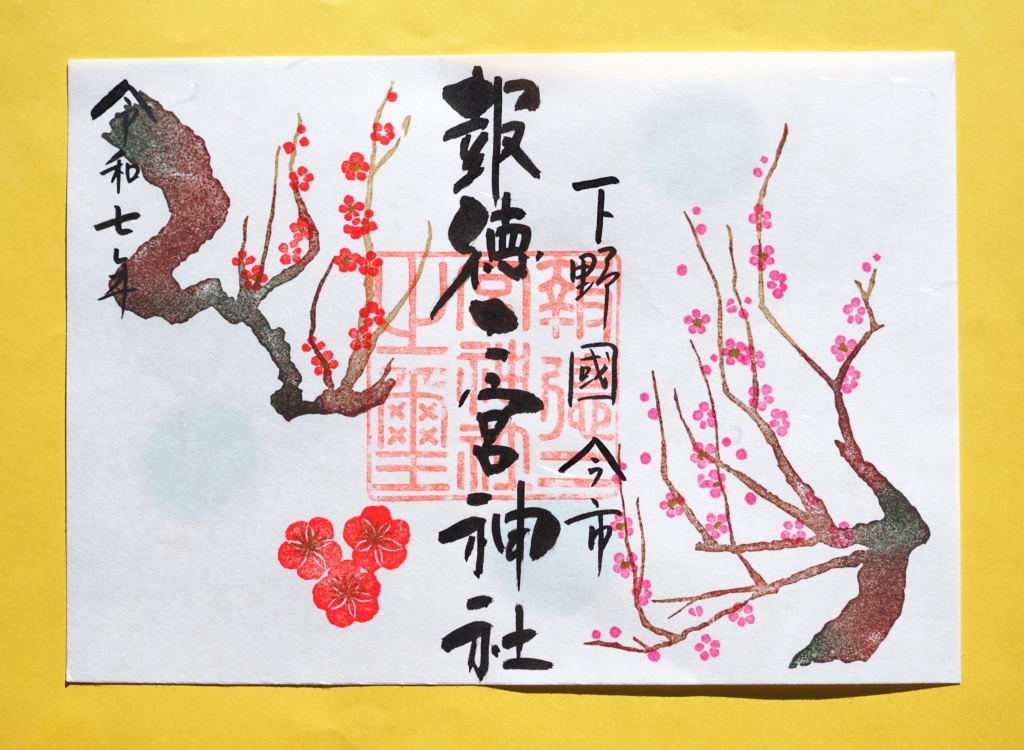 下野國 今市
報徳二宮神社
令和七年
報徳二
宮神社
之璽